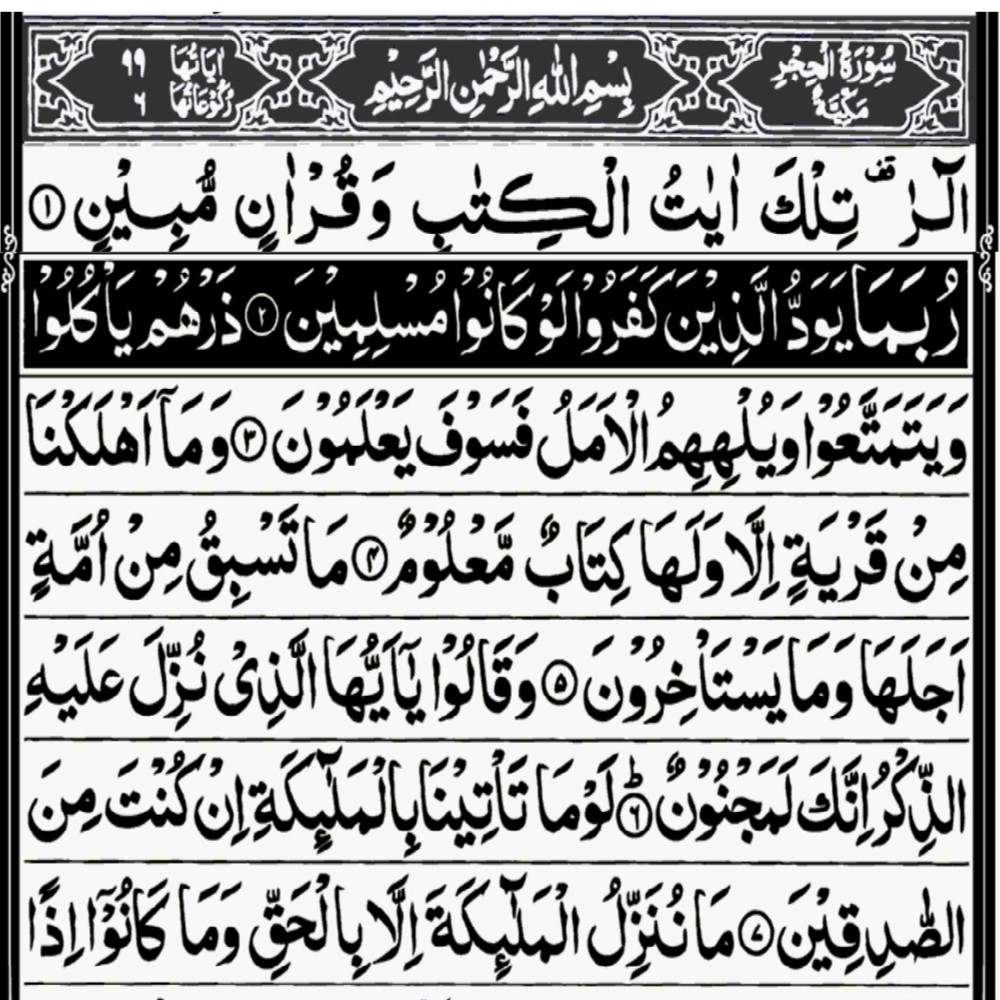 سُوْرَةُ الْحِجْرِ مَكِّيَّةٌ
بِسْمِ اللّٰهِ الرَّحْمٰنِ الرَّحِيْمِ
اٰيَاتُهَا ٩٩
رُكُوْعَاتُهَا ٦
الٓرٰ ۫ تِلْكَ اٰيٰتُ الْكِتٰبِ وَ قُرْاٰنٍ مُّبِيْنٍ ١
رُبَمَا يَوَدُّ الَّذِيْنَ كَفَرُوْا لَوْ كَانُوْا مُسْلِمِيْنَ ٢ ذَرْهُمْ يَاْكُلُوْا
وَيَتَمَتَّعُوْا وَيُلْهِهِمُ الْاَمَلُ فَسَوْفَ يَعْلَمُوْنَ ٣ وَمَآ اَهْلَكْنَا
مِنْ قَرْيَةٍ اِلَّا وَلَهَا كِتَابٌ مَّعْلُوْمٌ ۴ مَا تَسْبِقُ مِنْ اُمَّةٍ
اَجَلَهَا وَمَا يَسْتَاْخِرُوْنَ ۵ وَقَالُوْا يٰٓاَيُّهَا الَّذِىْ نُزِّلَ عَلَيْهِ
الذِّكْرُ اِنَّكَ لَمَجْنُوْنٌ ؕ ٦ لَوْمَا تَاْتِيْنَا بِالْمَلٰٓئِكَةِ اِنْ كُنْتَ مِنَ
الصّٰدِقِيْنَ ٧ مَا نُنَزِّلُ الْمَلٰٓئِكَةَ اِلَّا بِالْحَقِّ وَمَا كَانُوْٓا اِذًا